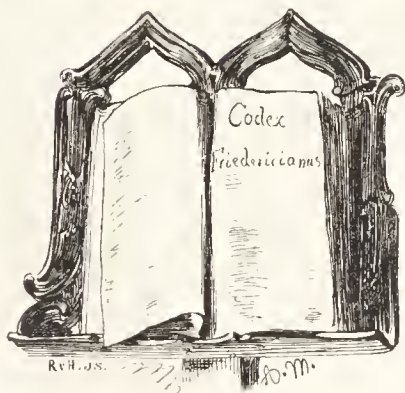 Codex
Friedericianus
RvH. J.S.
A.M.